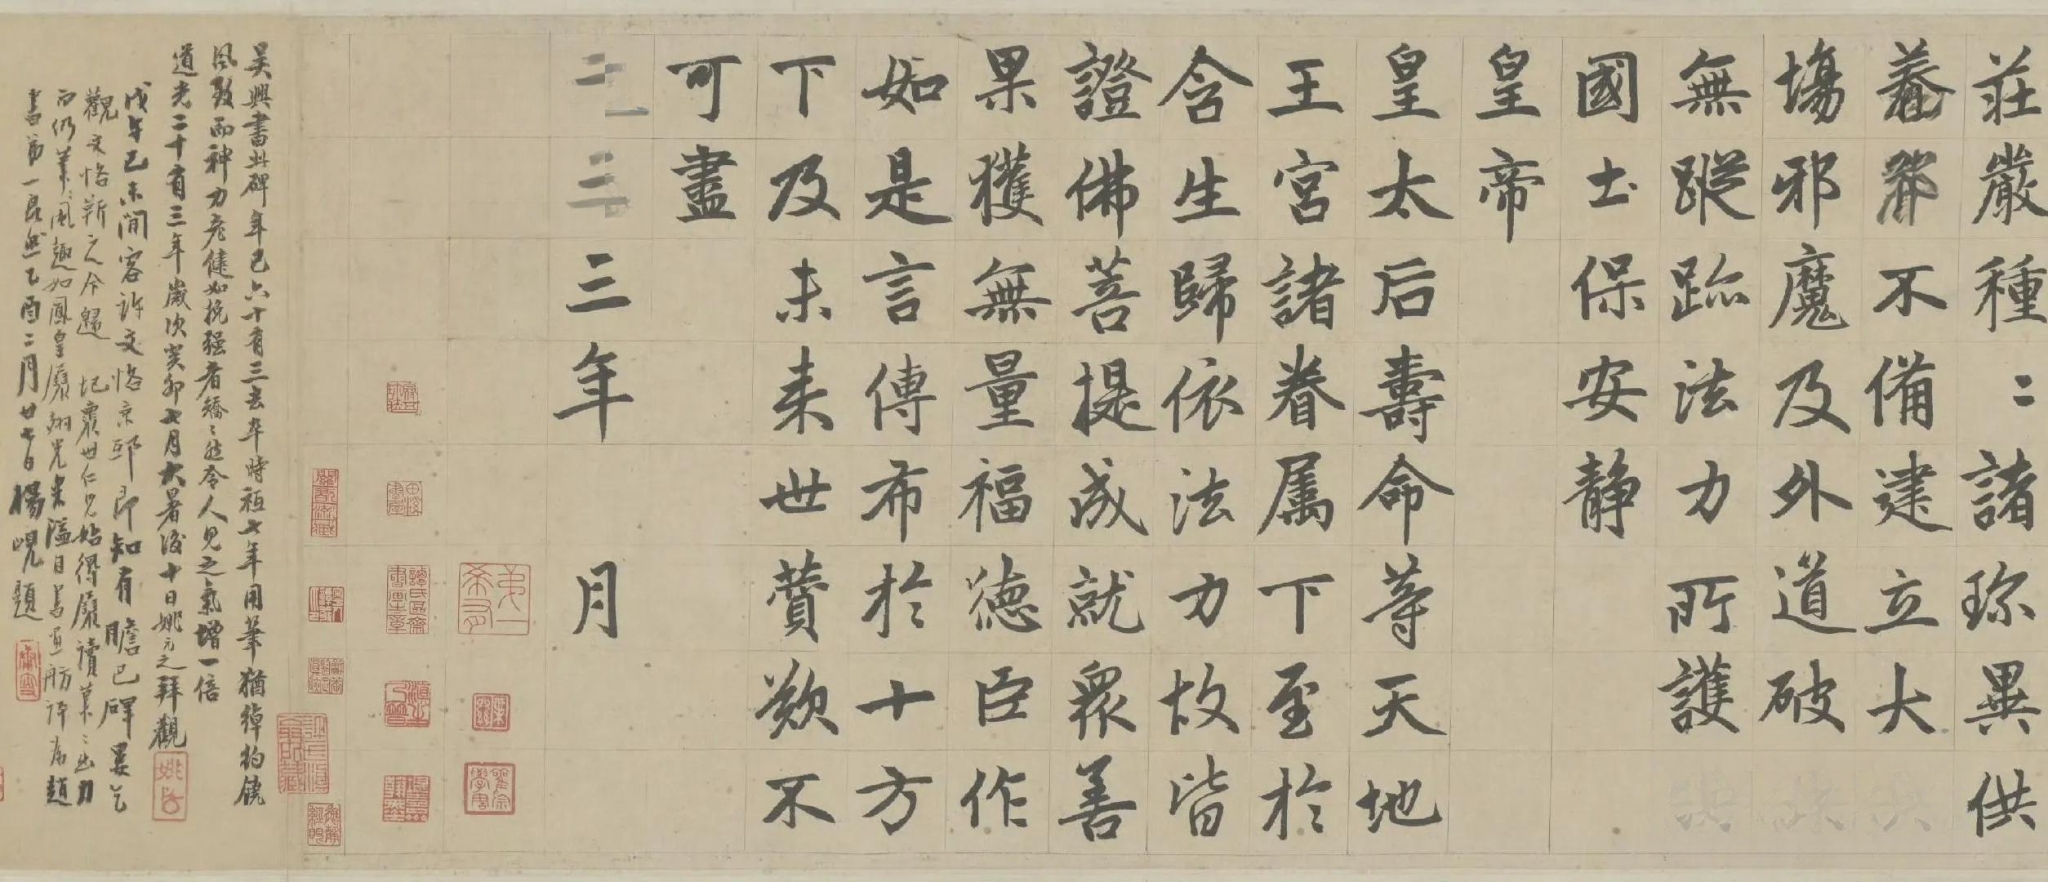 莊嚴種〻諸珎異供
養眾不備建立大
場邪魔及外道破
無蹤跡法力所護
國土保安静
皇帝
皇太后壽命等天地
王宮諸眷属下至於
含生歸依法力故皆
證佛菩提成就衆善
果獲無量福德臣作
如是言傳布於十方
下及未来世賛歎不
可盡
三年 月
吳興書此碑年已六十有三去卒時祗七年用筆猶綽約饒
風致而神力老健如挽强者矯〻然令人見之氣增一倍
道光二十有三年歲次癸卯七月大暑後十日姚元之拜觀
戊午己未間客許文恪京邸即知有膽巴碑婁乞
觀文恪靳之今歸 世仁兄始得展讀
風趣如鳳皇 翔光采溢目
書第一良然乙酉二月廿七日楊峴題